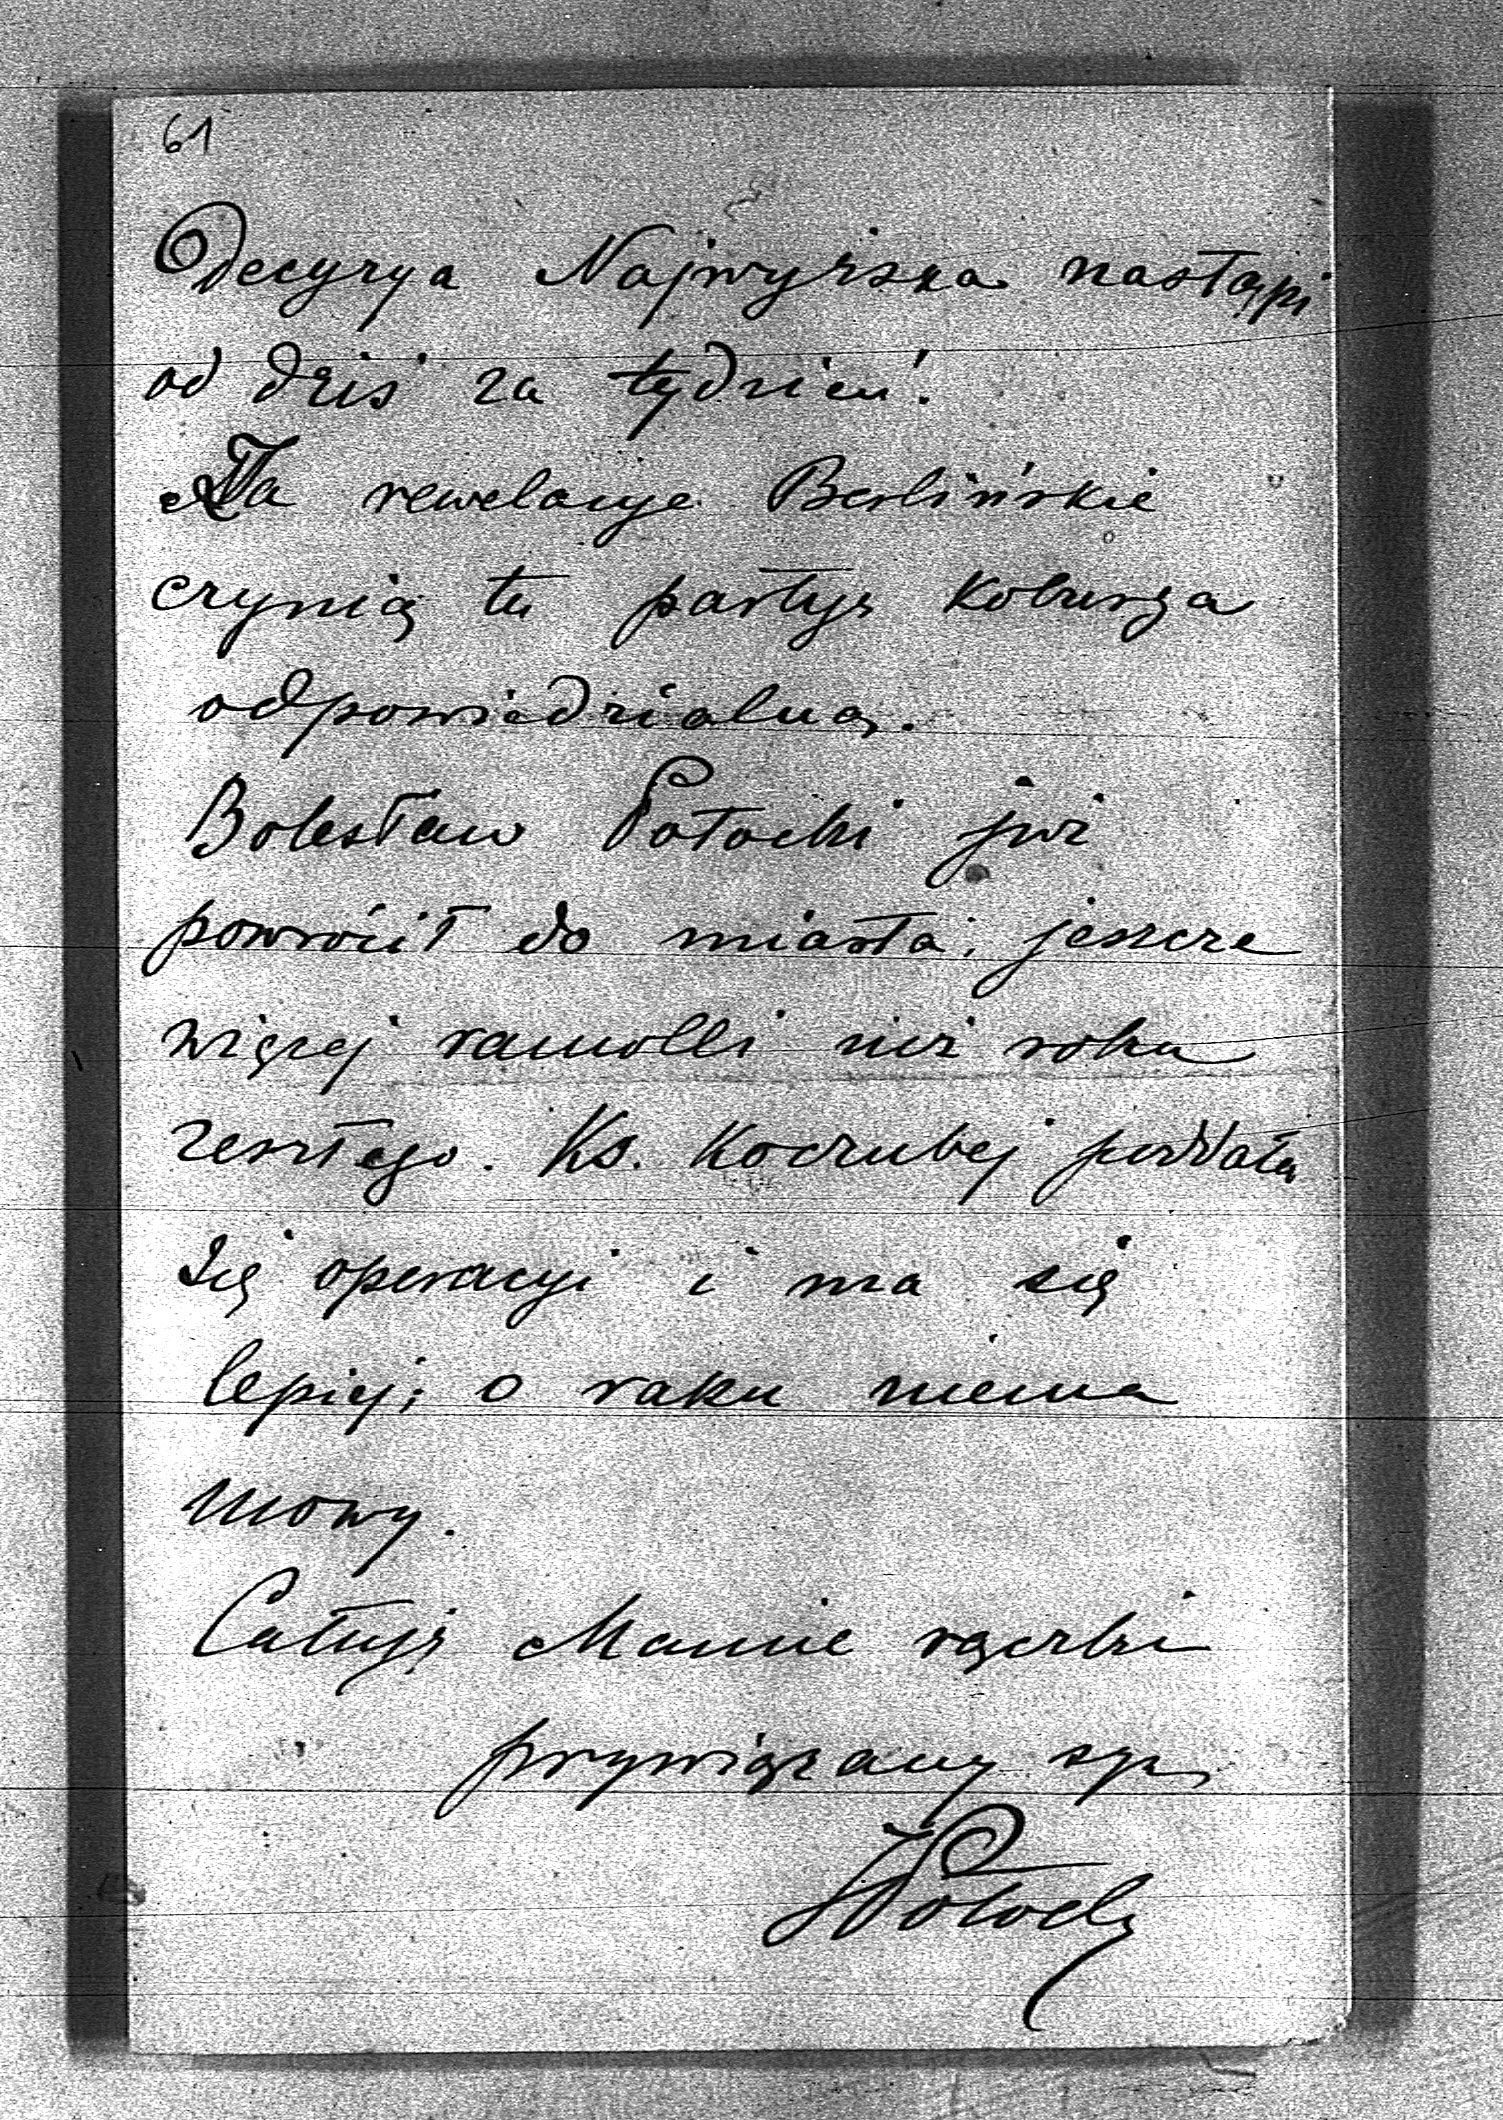 61
Decyzya Najwyższa nastąpi
od dziś za tydzień!
Za rewelacye Berlińskie
czynią tu partyę Koburga
odpowiedzialną.
Bolesław Potocki już
powrócił do miasta, jeszcze
więcej ramolli niż roku
zeszłego. Ks. Koczubej poddała
się operacyi i ma się
lepiej; o raku niema
mowy.
Całuję Mamie rączki
przywiązany syn
JPotocki